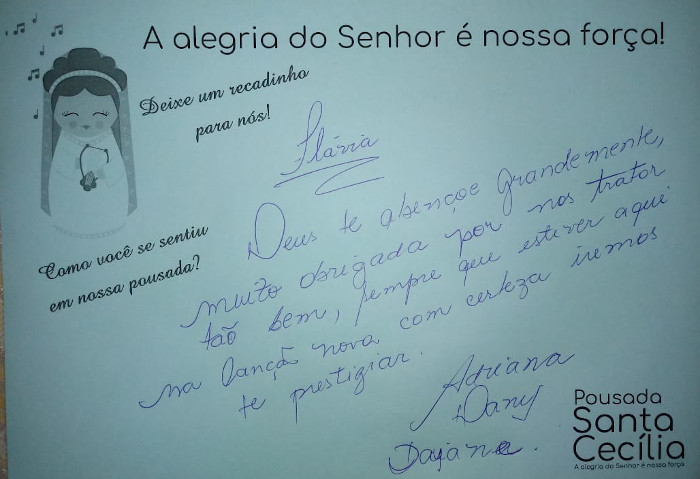 A alegria do Senhor é nossa força!
Deixe um recadinho
para nós!
Como você se sentiu
em nossa pousada?
Flávia
Deus te abençoe grandemente,
muito obrigada por nos tratar
tão bem, sempre que estiver aqui
na Canção nova com certeza iremos
te prestigiar.
Adriana
Dany
Dajana.
Pousada
Santa
Cecília
A alegria do Senhor é nossa força